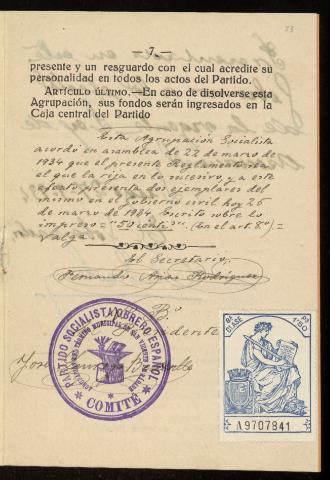 53
— 7 —
presente y un resguardo con el cual acredite su
personalidad en todos los actos del Partido.
ARTÍCULO ÚLTIMO.—En caso de disolverse esta
Agrupación, sus fondos serán ingresados en la
Caja central del Partido
Esta Agrupación Socialista
acordó en asamblea de 22 de marzo de
1934 que el presente Reglamento sea
el que la rija en lo sucesivo, y a este
efecto presenta dos ejemplares del
mismo en el Gobierno civil hoy 26
de marzo de 1934. Escrito sobre lo
impreso = "50 cents" = (En el art. 8º) =
Valga
El Secretario,
Fernando Rodríguez
Bº
Presidente
José
PARTIDO SOCIALISTA OBRERO ESPAÑOL
COMITÉ
8ª CLASE
PTS 1'50
A9707841